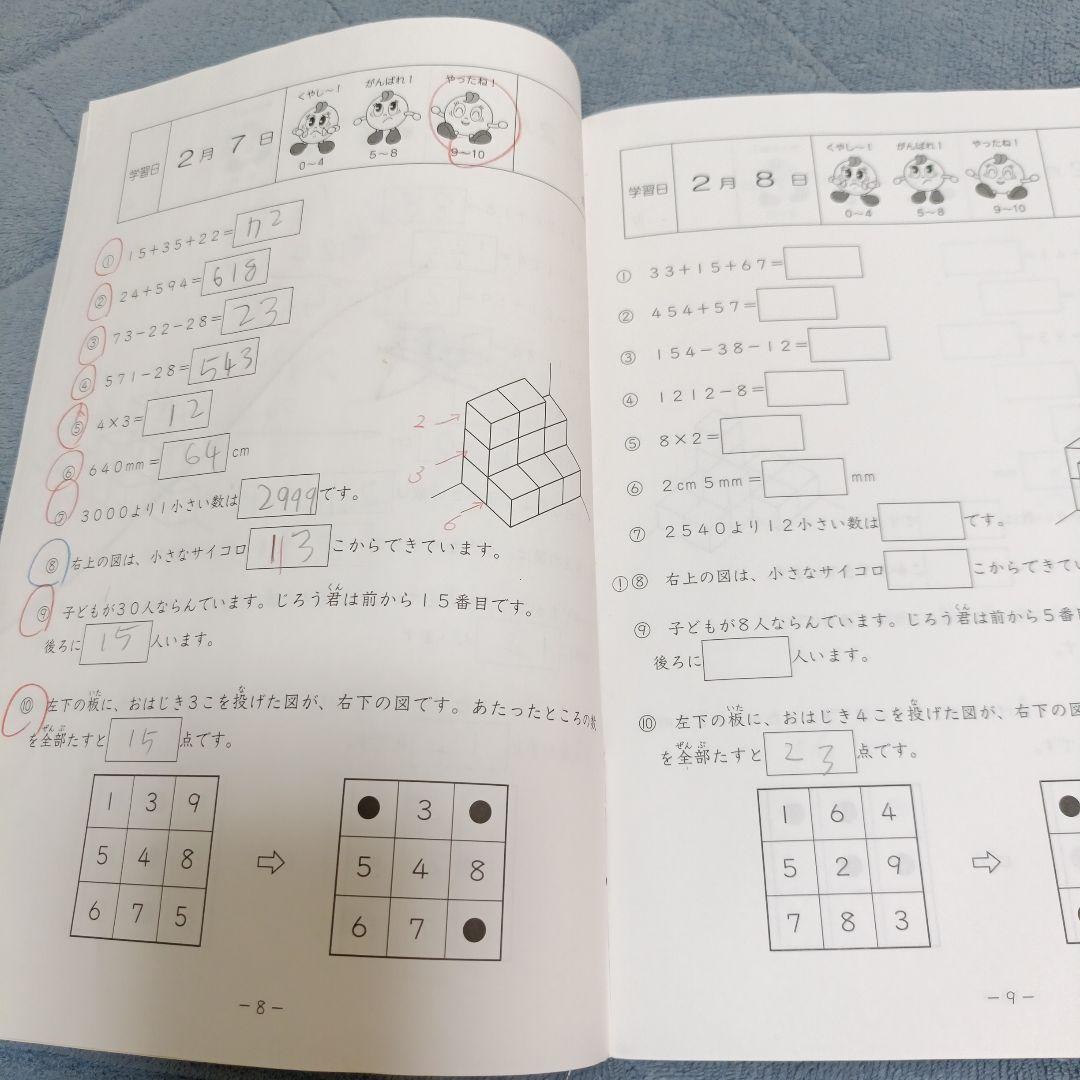 学習日
2月7日
くやし～！
がんばれ！
やったね！
0～4
5～8
9～10
① 15+35+22=72
② 24+594=618
③ 73-22-28=23
④ 571-28=543
⑤ 4×3=12
⑥ 640mm=64cm
⑦ 3000より1小さい数は2999です。
⑧ 右上の図は、小さなサイコロ13こからできています。
2
3
6
⑨ 子どもが30人ならんでいます。じろう君は前から15番目です。
後ろに15人います。
⑩ 左下の板に、おはじき3こを投げた図が、右下の図です。あたったところの数
を全部たすと15点です。
1 3 9
5 4 8
6 7 5
⇨
3
5 4 8
6 7
-8-
学習日
2月8日
くやし～！
がんばれ！
やったね！
0～4
5～8
9～10
① 33+15+67=
② 454+57=
③ 154-38-12=
④ 1212-8=
⑤ 8×2=
⑥ 2cm5mm= mm
⑦ 2540より12小さい数は です。
⑧ 右上の図は、小さなサイコロ こからできてい
⑨ 子どもが8人ならんでいます。じろう君は前から5番
後ろに 人います。
⑩ 左下の板に、おはじき4こを投げた図が、右下の図
を全部たすと23点です。
1 6 4
5 2 9
7 8 3
⇨
-9-